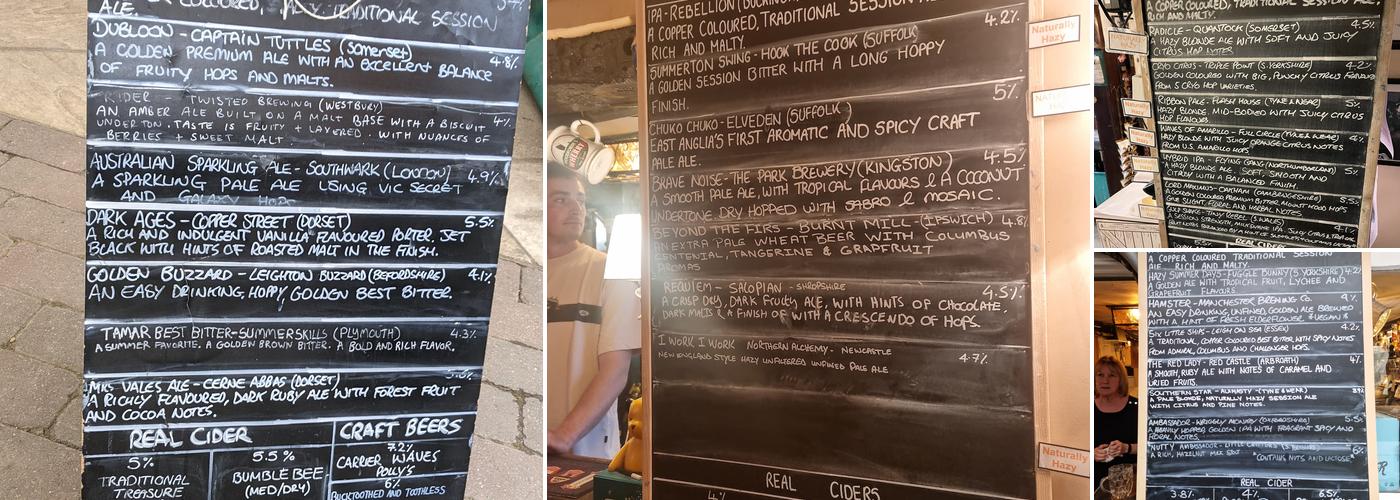 ALE. TRADITIONAL SESSION
DUBLOON - CAPTAIN TUTTLES (Somerset)
A GOLDEN PREMIUM ALE WITH AN EXCELLENT BALANCE 4.8%
OF FRUITY HOPS AND MALTS.
RIDER - TWISTED BREWING (WESTBURY)
AN AMBER ALE BUILT ON A MALT BASE WITH A BISCUIT 4%
UNDERTON. TASTE IS FRUITY + LAYERED. WITH NUANCES OF
BERRIES + SWEET MALT.
AUSTRALIAN SPARKLING ALE - SOUTHWARK (LONDON)
A SPARKLING PALE ALE USING VIC SECRET 4.9%
AND GALAXY HOPS
DARK AGES - COPPER STREET (DORSET) 5.5%
A RICH AND INDULGENT VANILLA FLAVOURED PORTER. JET
BLACK WITH HINTS OF ROASTED MALT IN THE FINISH.
GOLDEN BUZZARD - LEIGHTON BUZZARD (BEFORDSHIRE) 4.1%
AN EASY DRINKING, HOPPY, GOLDEN BEST BITTER.
TAMAR BEST BITTER - SUMMERSKILLS (PLYMOUTH) 4.3%
A SUMMER FAVORITE. A GOLDEN BROWN BITTER. A BOLD AND RICH FLAVOR.
MRS VALES ALE - CERNE ABBAS (DORSET)
A RICHLY FLAVOURED, DARK RUBY ALE WITH FOREST FRUIT
AND COCOA NOTES.
REAL CIDER
5%
TRADITIONAL
TREASURE
5.5%
BUMBLE BEE
(MED/DRY)
CRAFT BEERS
7.2%
CARRIER WAVES
POLLY'S
6%
BUCKTOOTHED AND TOOTHLESS
IPA - REBELLION
A COPPER COLOURED, TRADITIONAL SESSION
RICH AND MALTY. 4.2%
SUMMERTON SWING - HOOK THE COOK (SUFFOLK)
A GOLDEN SESSION BITTER WITH A LONG HOPPY
FINISH. 5%
CHUKO CHUKO - ELVEDEN (SUFFOLK)
EAST ANGLIA'S FIRST AROMATIC AND SPICY CRAFT
PALE ALE.
BRAVE NOISE - THE PARK BREWERY (KINGSTON) 4.5%
A SMOOTH PALE ALE, WITH TROPICAL FLAVOURS & A COCONUT
UNDERTONE. DRY HOPPED WITH SABRO & MOSAIC.
BEYOND THE FIRS - BURNT MILL - (IPSWICH) 4.8%
AN EXTRA PALE WHEAT BEER WITH COLUMBUS
CENTENIAL, TANGERINE & GRAPEFRUIT
AROMAS
REQUIEM - SALOPIAN - SHROPSHIRE 4.5%
A CRISP DRY, DARK FRUITY ALE, WITH HINTS OF CHOCOLATE,
DARK MALTS & A FINISH OF WITH A CRESCENDO OF HOPS.
I WORK, I WORK NORTHERN ALCHEMY - NEWCASTLE
NEW ENGLAND STYLE HAZY UNFILTERED UNFINED PALE ALE 4.7%
REAL CIDERS
Naturally
Hazy
Naturally
Hazy
Naturally
Hazy
A COPPER COLOURED, TRADITIONAL SESSION
RICH AND MALTY.
RADICLE - QUANTOCK (SOMERSET) 4.5%
A HAZY BLONDE ALE WITH SOFT AND JUICY
CITRUS HOP
CRYO CITRUS - TRIPLE POINT (S. YORKSHIRE) 4.2%
GOLDEN COLOURED WITH BIG, PUNCHY CITRUS FLAVOURS
FROM 5 CRYO HOP VARIETIES.
RIBBON PALE - FLASH HOUSE (TYNE & WEAR) 5%
HAZY BLONDE MID-BODIED WITH JUICY CITRUS
HOP FLAVOURS
WAVES OF AMARILLO - FULL CIRCLE (TYNE & WEAR) 4%
HAZY BLONDE WITH JUICY ORANGE CITRUS NOTES
FROM U.S. AMARILLO HOPS
HYBRID IPA - FLYING GANG (NORTHUMBERLAND) 5%
A HAZY BLONDE ALE. SOFT, SMOOTH AND
CITRUSY WITH A BALANCED FINISH.
LORD MAXIMUS - OAKHAM (CAMBRIDGESHIRE) 5.5%
A GOLDEN COLOURED PREMIUM BITTER, MOUNT HOOD HOPS
GIVE SLIGHT, FLORAL AND HERBAL NOTES.
TINY REBEL 4.1%
REAL CIDER
A COPPER COLOURED TRADITIONAL SESSION
ALE, RICH AND MALTY.
HAZY SUMMER DAYS - FUGGLE BUNNY (S YORKSHIRE) 4.2%
A GOLDEN ALE WITH TROPICAL FRUIT, LYCHEE AND
GRAPEFRUIT FLAVOURS
HAMSTER - MANCHESTER BREWING CO.
AN EASY DRINKING, UNFINED, GOLDEN ALE BREWED
WITH A HINT OF FRESH ELDERFLOWER. VEGAN
SIX LITTLE SHIPS - LEIGH ON SEA (ESSEX) 4.2%
A TRADITIONAL, COPPER COLOURED BEST BITTER, WITH SPICY NOTES
FROM ADMIRAL, COLUMBUS AND CHALLENGER HOPS.
THE RED LADY - RED CASTLE (ARBROATH) 4%
A SMOOTH, RUBY ALE WITH NOTES OF CARAMEL AND
DRIED FRUITS.
SOUTHERN STAR - ALMASTY - (TYNE & WEAR)
A PALE BLONDE, NATURALLY HAZY SESSION ALE
WITH CITRUS AND PINE NOTES.
AMBASSADOR - WRIGGLY MONKEY (OXFORDSHIRE) 5.5%
A HEAVILY HOPPED GOLDEN IPA WITH FRAGRANT SPICY AND
FLORAL NOTES.
NUTTY AMBASSADOR - LITTLE CRITTERS 6%
A RICH, HAZELNUT MILK STOUT *CONTAINS NUTS AND LACTOSE*
REAL CIDER
3.8% 4% 6.5%